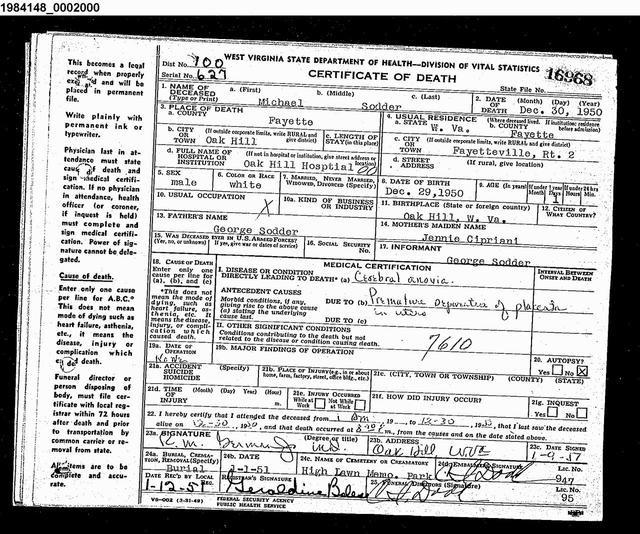 1984148_0002000
This becomes a legal
record when properly
and will be
placed in permanent
file.
Write plainly with
permanent ink or
typewriter.
Physician last in at-
tendance must state
cause of death and
sign medical certifi-
cation. If no physi-
cian in attendance,
health officer (or
coroner, if inquest
is held) must
complete and
sign medical certifi-
cation. Power of sig-
nature cannot be dele-
gated.
Cause of death.
Enter only one cause
per line for A.B.C.*
This does not mean
mode of dying such as
heart failure, asthenia,
etc., it means the
disease, injury or
complication which
death.
Funeral director or
person disposing of
body, must file cer-
tificate with local reg-
istrar within 72 hours
after death and prior
to transportation by
common carrier or re-
moval from state.
All items are to be
complete and accu-
rate.
WEST VIRGINIA STATE DEPARTMENT OF HEALTH—DIVISION OF VITAL STATISTICS
CERTIFICATE OF DEATH
Dist No. 100
Serial No. 627
State File No. 16968
1. NAME OF DECEASED (Type or Print) a. (First) b. (Middle) c. (Last)
Michael Sodder
2. DATE OF DEATH (Month) (Day) (Year)
Dec. 30, 1950
3. PLACE OF DEATH
a. COUNTY Fayette
4. USUAL RESIDENCE (Where deceased lived. If institution: residence before admission)
a. STATE W. Va. Fayette
b. CITY OR TOWN (If outside corporate limits, write RURAL and give district)
Oak Hill
c. LENGTH OF STAY (in this place)
c. CITY OR TOWN (If outside corporate limits, write RURAL and give district)
Fayetteville, Rt. 2
d. FULL NAME OF HOSPITAL OR INSTITUTION (If not in hospital or institution, give street address or location)
Oak Hill Hosptial
d. STREET ADDRESS (If rural, give location)
5. SEX male
6. COLOR OR RACE white
7. MARRIED, NEVER MARRIED, WIDOWED, DIVORCED (Specify)
8. DATE OF BIRTH Dec. 29, 1950
9. AGE (In years) If under 1 year If under 24 hrs.
1
10. USUAL OCCUPATION
X
10a. KIND OF BUSINESS OR INDUSTRY
11. BIRTHPLACE (State or foreign country)
Oak Hill, W. Va.
12. CITIZEN OF WHAT COUNTRY?
13. FATHER'S NAME
George Sodder
14. MOTHER'S MAIDEN NAME
Jennie Cipriani
15. WAS DECEASED EVER IN U.S. ARMED FORCES? (Yes, no, or unknown) If yes, give war or dates of service)
16. SOCIAL SECURITY No.
17. INFORMANT
George Sodder
MEDICAL CERTIFICATION
INTERVAL BETWEEN ONSET AND DEATH
18. CAUSE OF DEATH
Enter only one cause per line for (a), (b), and (c)
*This does not mean the mode of dying, such as heart failure, asthenia, etc. It means the disease, injury, or complication which caused death.
I. DISEASE OR CONDITION DIRECTLY LEADING TO DEATH* (a) Cerebral anoxia.
ANTECEDENT CAUSES
Morbid conditions, if any, giving rise to the above cause (a) stating the underlying cause last.
DUE TO (b) Premature separation of placenta
in utero
DUE TO (c)
II. OTHER SIGNIFICANT CONDITIONS
Conditions contributing to the death but not related to the disease or condition causing death.
7610
19a. DATE OF OPERATION
None
19b. MAJOR FINDINGS OF OPERATION
20. AUTOPSY?
Yes No X
21a. ACCIDENT SUICIDE HOMICIDE (Specify)
21b. PLACE OF INJURY (e.g., in or about home, farm, factory, street, office bldg., etc.)
21c. (CITY, TOWN OR TOWNSHIP) (COUNTY) (STATE)
21d. TIME OF INJURY (Month) (Day) (Year) (Hour) m.
21e. INJURY OCCURRED While at Work Not While at Work
21f. HOW DID INJURY OCCUR?
21g. INQUEST
Yes No
22. I hereby certify that I attended the deceased from 19 , to 12-30 , that I last saw the deceased
alive on 12-30, 1950, and that death occurred at m., from the causes and on the date stated above.
23a. SIGNATURE (Degree or title)
M.D.
23b. ADDRESS
Oak Hill W.Va
23c. DATE SIGNED
24a. BURIAL, CREMATION, REMOVAL (Specify)
Burial
24b. DATE
1-1-51
24c. NAME OF CEMETERY OR CREMATORY
High Lawn Memo. Park
24d. EMBALMER'S SIGNATURE
LIC. NO.
947
DATE REC'D BY LOCAL REG.
1-12-51
REGISTRAR'S SIGNATURE
Geraldine
25. FUNERAL DIRECTOR'S (Signature)
LIC. NO.
95
VS-002 (3-31-49)
FEDERAL SECURITY AGENCY
PUBLIC HEALTH SERVICE